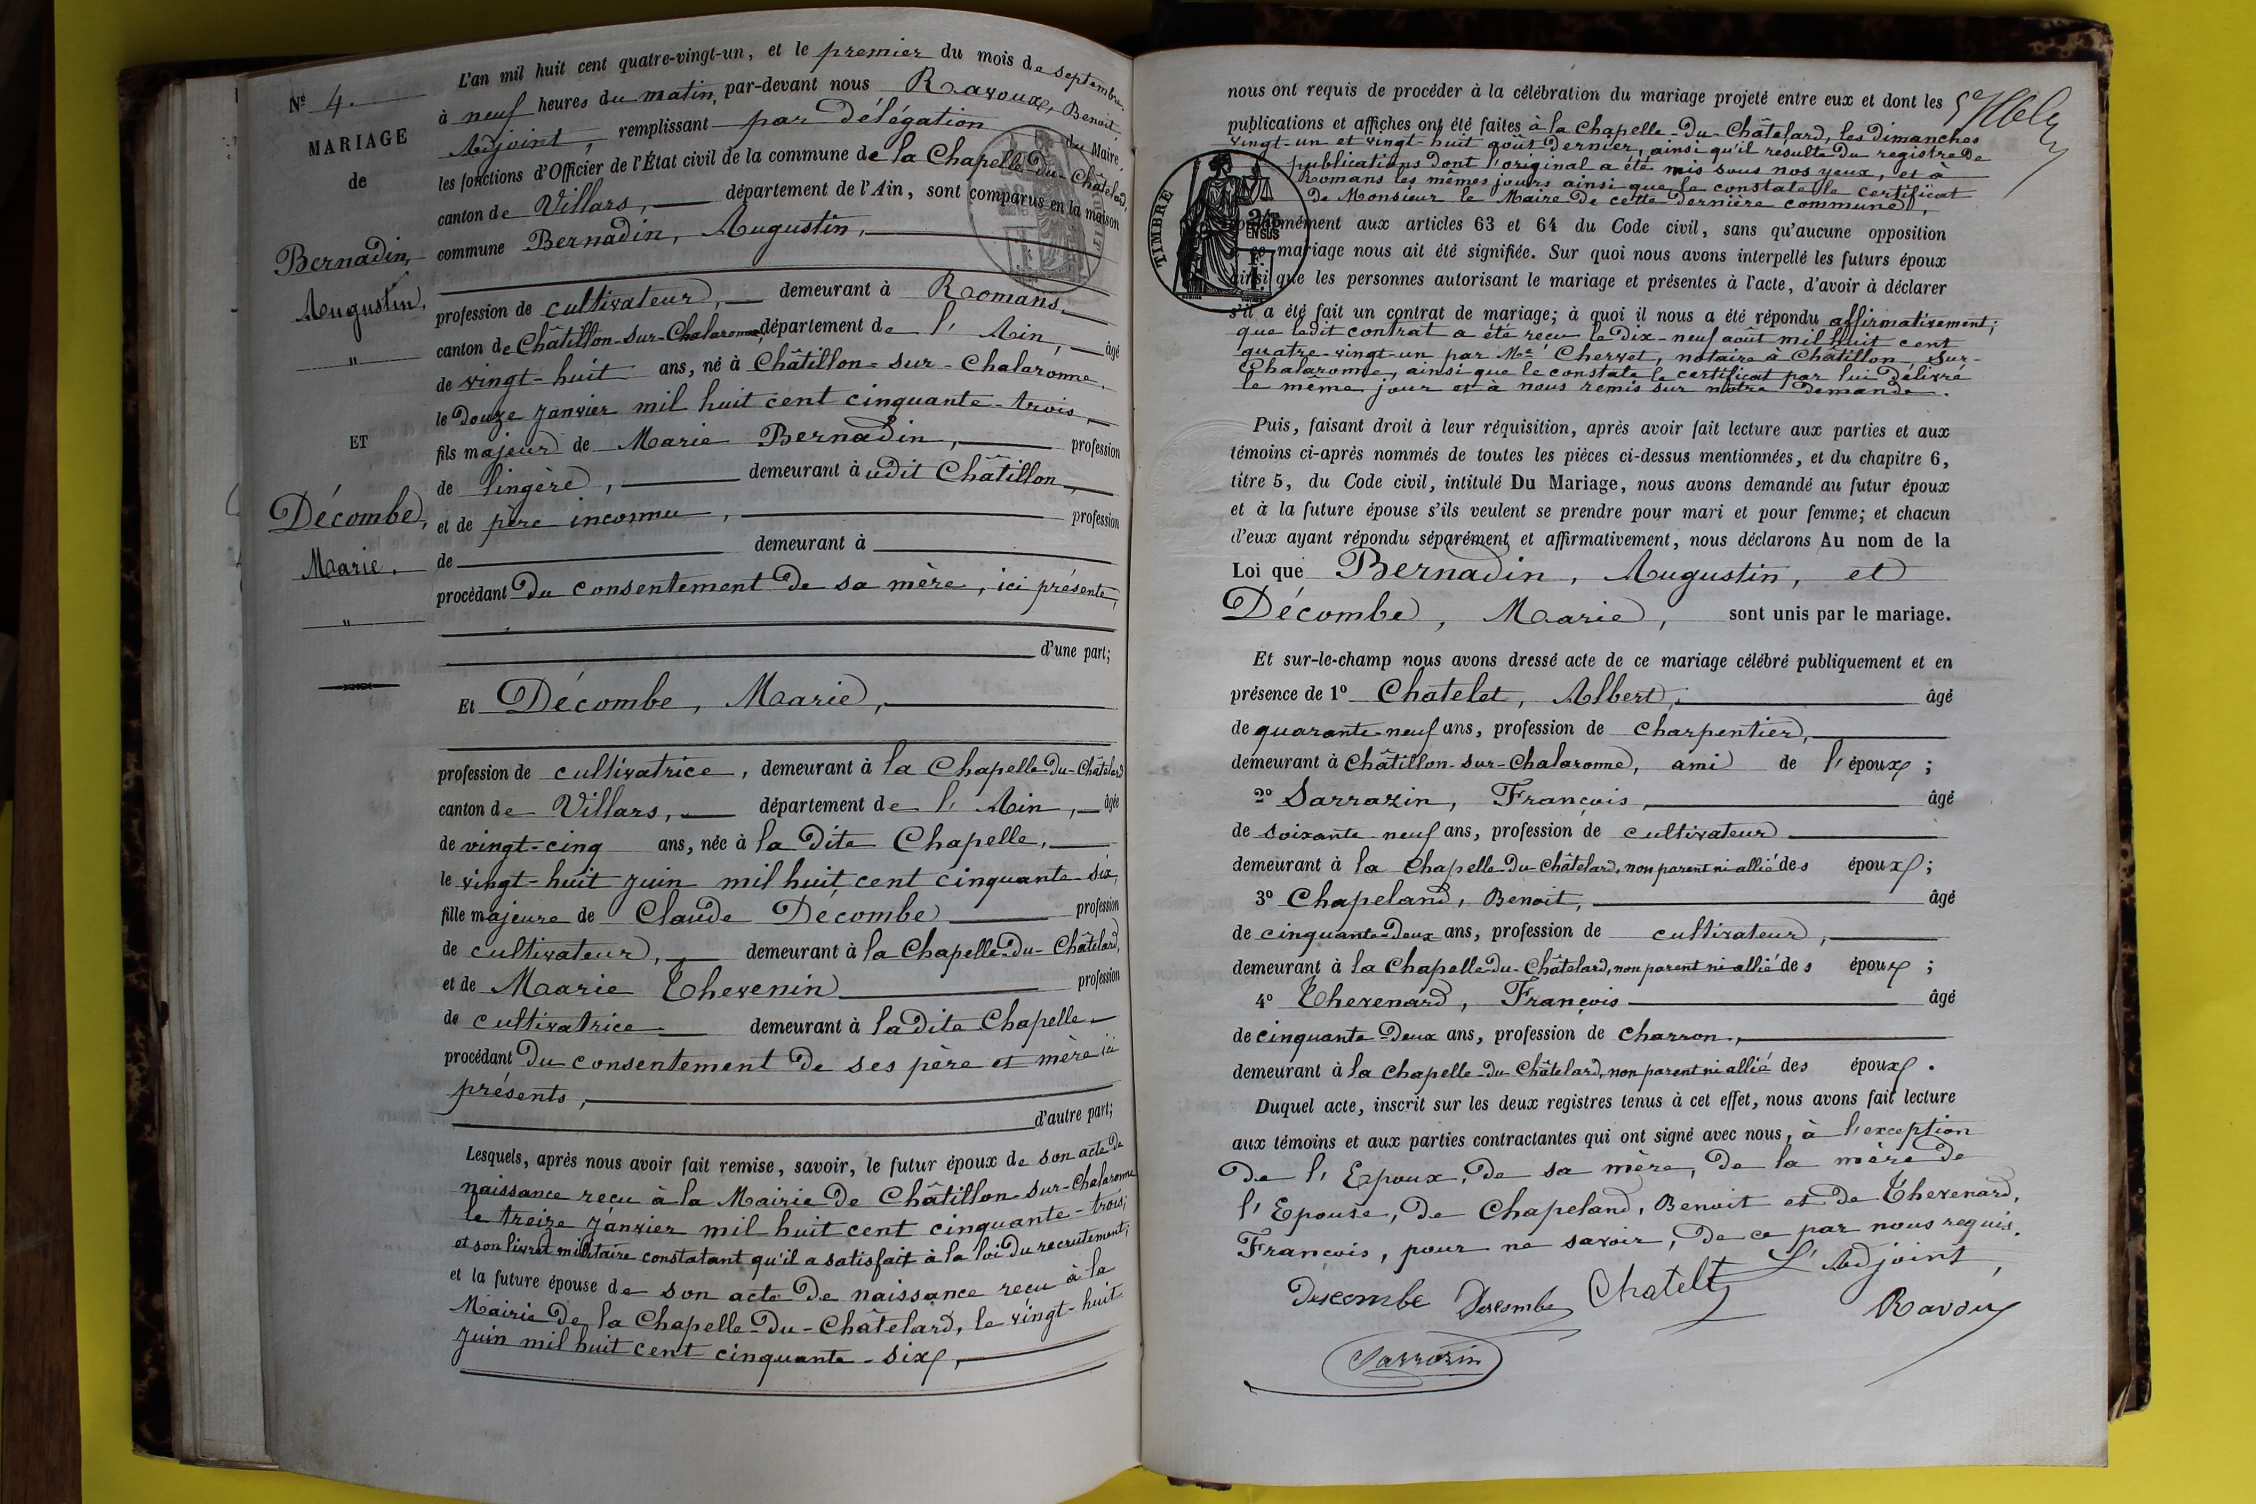 Nº 4.
MARIAGE
de
Bernadin,
Augustin,
"
ET
Décombe,
Marie.
"
L'an mil huit cent quatre-vingt-un, et le premier du mois de septembre,
à neuf heures du matin, par-devant nous Ravoux, Benoit,
Adjoint, remplissant par délégation du Maire,
les fonctions d'Officier de l'État civil de la commune de la Chapelle-du-Châtelard,
canton de Villars, département de l'Ain, sont comparus en la maison
commune Bernadin, Augustin,
profession de cultivateur, demeurant à Romans,
canton de Châtillon-sur-Chalaronne, département de l'Ain, âgé
de vingt-huit ans, né à Châtillon-sur-Chalaronne,
le douze janvier mil huit cent cinquante-trois,
fils majeur de Marie Bernadin, profession
de lingère, demeurant à udit Châtillon,
et de père inconnu, profession
de demeurant à
procédant du consentement de sa mère, ici présente,
d'une part;
Et Décombe, Marie,
profession de cultivatrice, demeurant à la Chapelle-du-Châtelard
canton de Villars, département de l'Ain, âgée
de vingt-cinq ans, née à la dite Chapelle,
le vingt-huit juin mil huit cent cinquante-six,
fille majeure de Claude Décombe profession
de cultivateur, demeurant à la Chapelle-du-Châtelard,
et de Marie Thevenin profession
de cultivatrice demeurant à la dite Chapelle
procédant du consentement de ses père et mère ici
présents,
d'autre part;
Lesquels, après nous avoir fait remise, savoir, le futur époux de son acte de
naissance reçu à la Mairie de Châtillon-sur-Chalaronne
le treize janvier mil huit cent cinquante-trois;
et son livret militaire constatant qu'il a satisfait à la loi du recrutement;
et la future épouse de son acte de naissance reçu à la
Mairie de la Chapelle-du-Châtelard, le vingt-huit
juin mil huit cent cinquante-six,
nous ont requis de procéder à la célébration du mariage projeté entre eux et dont les
publications et affiches ont été faites à la Chapelle-du-Châtelard, les dimanches
vingt-un et vingt-huit août dernier, ainsi qu'il résulte du registre de
publications dont l'original a été mis sous nos yeux, et à
Romans les mêmes jours ainsi que le constate le certificat
de Monsieur le Maire de cette dernière commune,
TIMBRE
2/10 EN SUS
conformément aux articles 63 et 64 du Code civil, sans qu'aucune opposition
ce mariage nous ait été signifiée. Sur quoi nous avons interpellé les futurs époux
ainsi que les personnes autorisant le mariage et présentes à l'acte, d'avoir à déclarer
s'il a été fait un contrat de mariage; à quoi il nous a été répondu affirmativement;
que ledit contrat a été reçu le dix-neuf août mil huit cent
quatre-vingt-un par Me Chervet, notaire à Châtillon-sur-
Chalaronne, ainsi que le constate le certificat par lui délivré
le même jour et à nous remis sur notre demande.
Puis, faisant droit à leur réquisition, après avoir fait lecture aux parties et aux
témoins ci-après nommés de toutes les pièces ci-dessus mentionnées, et du chapitre 6,
titre 5, du Code civil, intitulé Du Mariage, nous avons demandé au futur époux
et à la future épouse s'ils veulent se prendre pour mari et pour femme; et chacun
d'eux ayant répondu séparément et affirmativement, nous déclarons Au nom de la
Loi que Bernadin, Augustin, et
Décombe, Marie, sont unis par le mariage.
Et sur-le-champ nous avons dressé acte de ce mariage célébré publiquement et en
présence de 1º Chatelet, Albert, âgé
de quarante-neuf ans, profession de charpentier,
demeurant à Châtillon-sur-Chalaronne, ami de l'époux;
2º Sarrazin, François, âgé
de soixante neuf ans, profession de cultivateur
demeurant à la Chapelle-du-Châtelard, non parent ni allié des époux;
3º Chapeland, Benoit, âgé
de cinquante-deux ans, profession de cultivateur,
demeurant à la Chapelle-du-Châtelard, non parent ni allié des époux;
4º Thevenard, François âgé
de cinquante-deux ans, profession de charron,
demeurant à la Chapelle-du-Châtelard, non parent ni allié des époux.
Duquel acte, inscrit sur les deux registres tenus à cet effet, nous avons fait lecture
aux témoins et aux parties contractantes qui ont signé avec nous, à l'exception
de l'Epoux, de sa mère, de la mère de
l'Epouse, de Chapeland, Benoit et de Thevenard,
François, pour ne savoir, de ce par nous requis.
L'Adjoint,
Descombe Descombe Chatelt Ravoux
Sarrozin